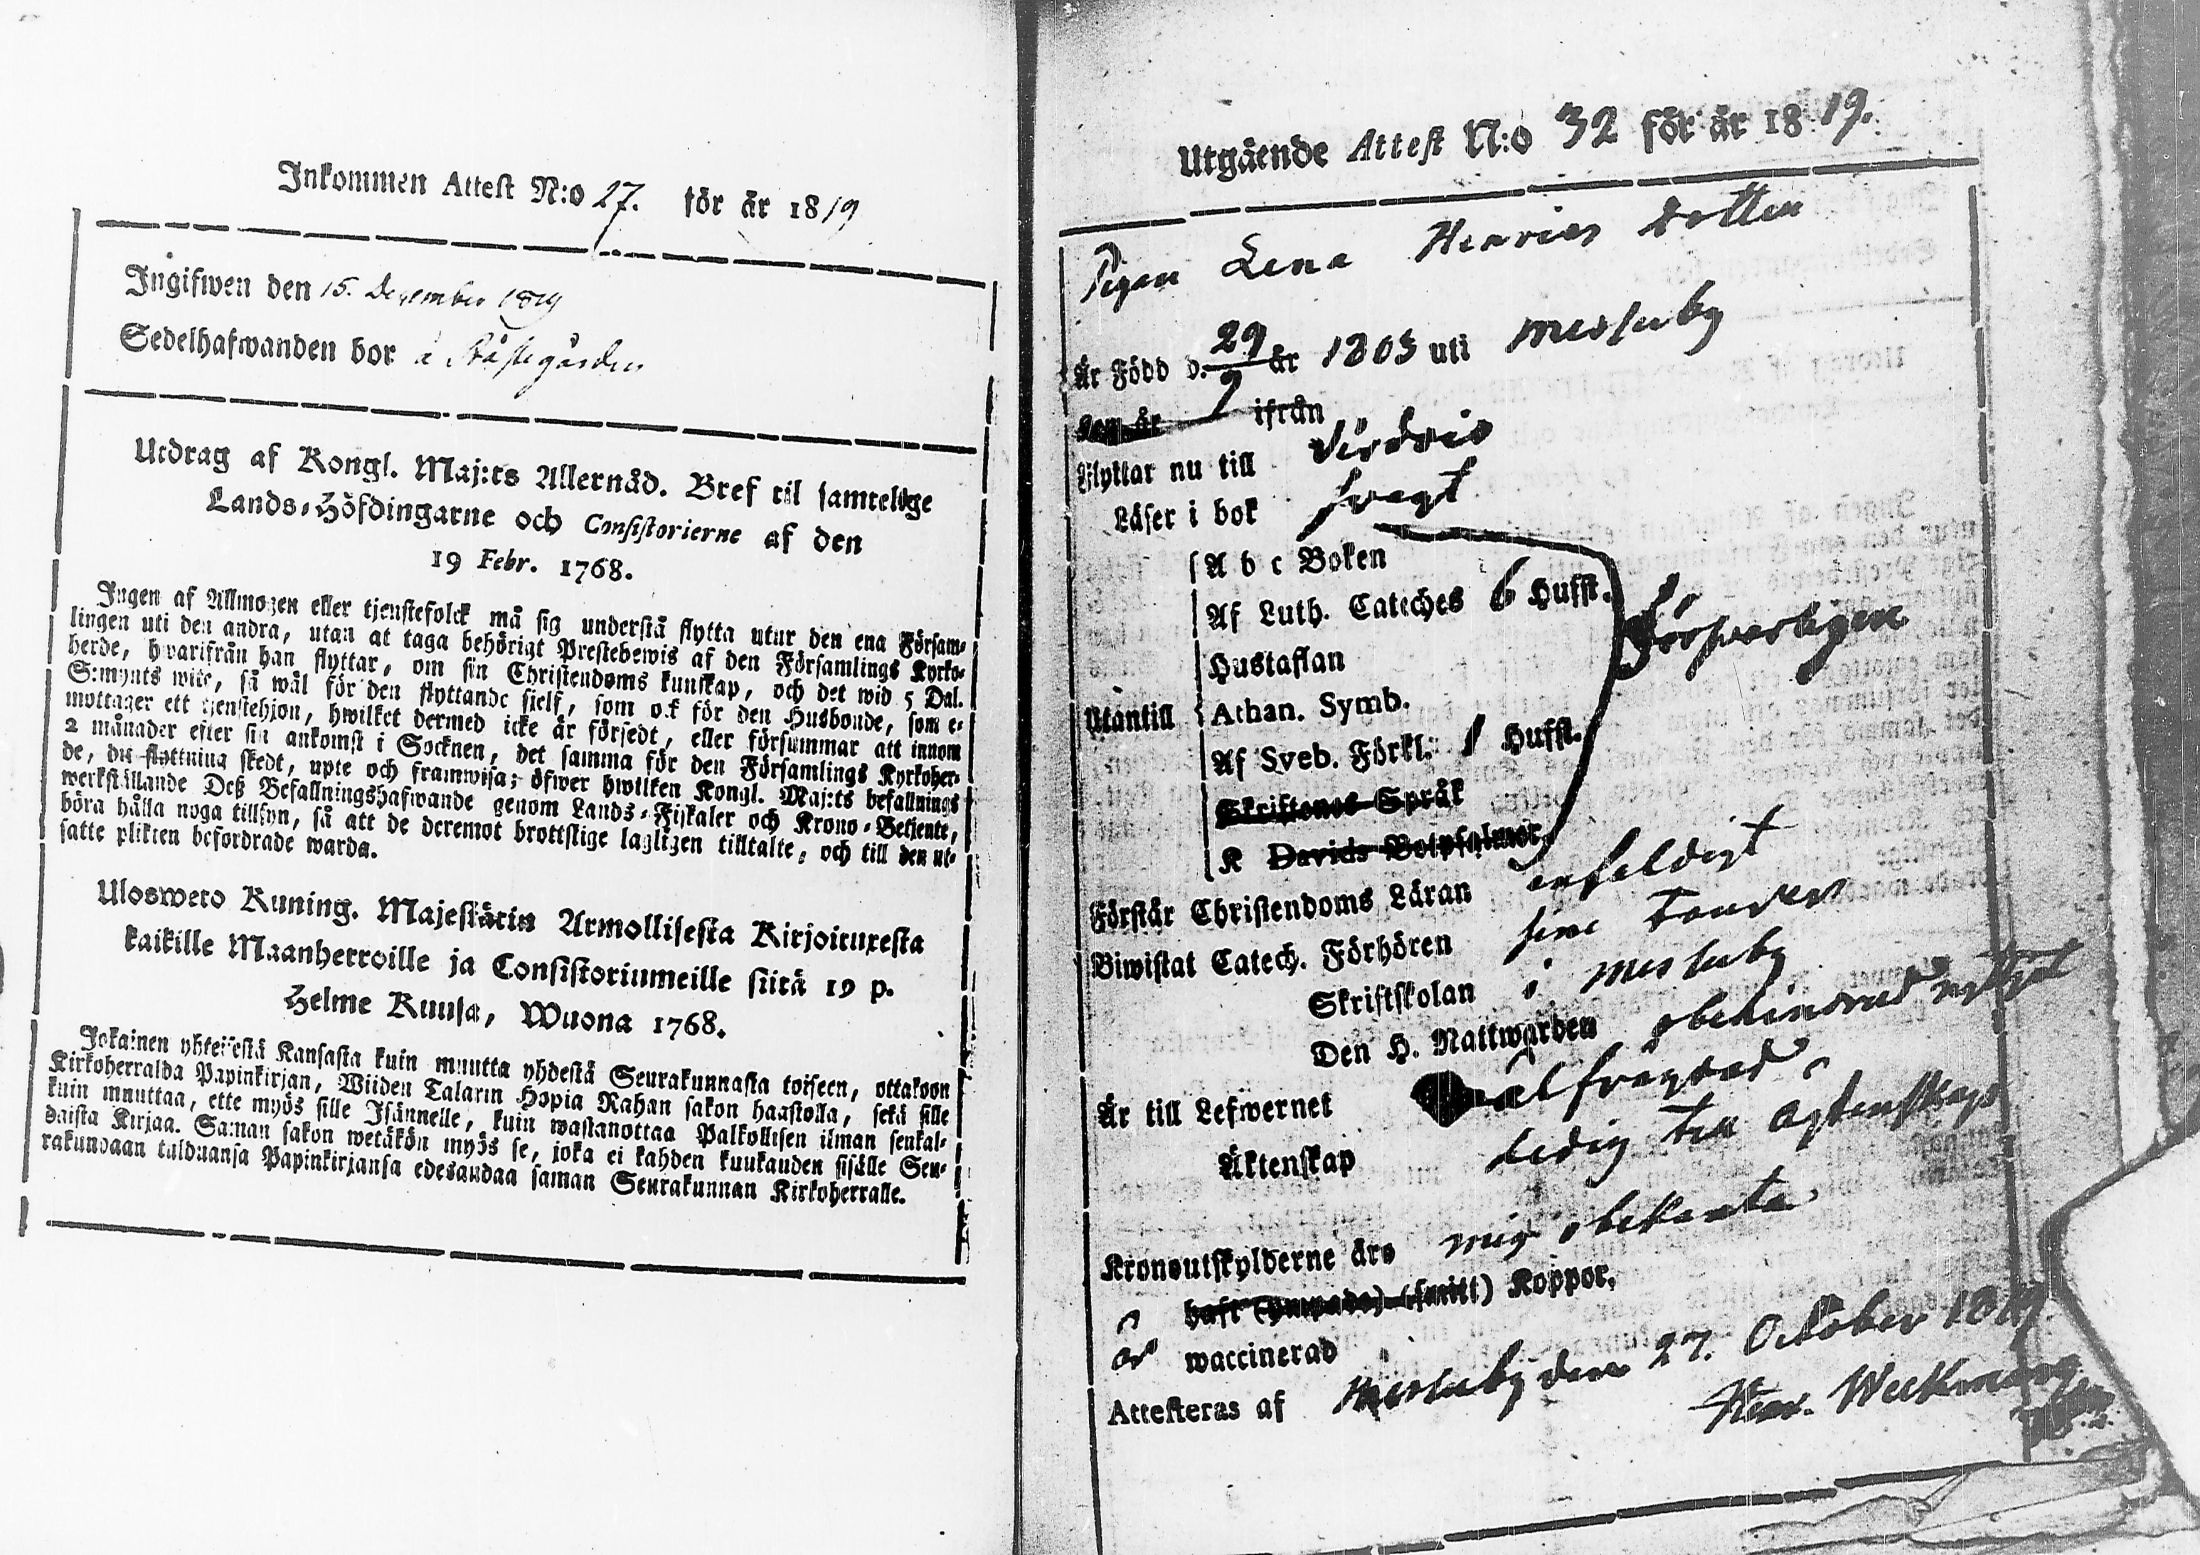 Inkommen Attest N:o 27. för år 1819
Ingifwen den 15. December 1819
Sedelhafwanden bor å Prästegården
Utdrag af Kongl. Maj:ts Allernåd. Bref til samtelige
Lands-Höfdingarne och Consistorierne af den
19 Febr. 1768.
Ingen af Allmogen eller tjenstefolck må sig understå flytta utur den ena Försam-
lingen uti den andra, utan at taga behörigt Prestebewis af den Församlings Kyrko-
herde, hwarifrån han flyttar, om sin Christendoms kunskap, och det wid 5 Dal.
S:mynts wite, så wäl för den flyttande sielf, som ock för den Husbonde, som e-
mottager ett tjenstehjon, hwilket dermed icke är försedt, eller försummar att innom
2 månader efter sin ankomst i Socknen, det samma för den Församlings Kyrkoher-
de, dit flyttning skedt, upte och framwisa; öfwer hwilken Kongl. Maj:ts befallnings
werkställande Deß Befallningshafwande genom Lands-Fiskaler och Krono-Betjente,
böra hålla noga tillsyn, så att de deremot brottslige lagligen tilltalte, och till den ut-
satte plikten befordrade warda.
Uloswero Kuning. Majestätin Armollisesta Kirjoituxesta
kaikille Maanherroille ja Consistoriumeille siitä 19 p.
Helme Kuusa, Wuona 1768.
Jokainen yhteisestä Kansasta kuin muutta yhdestä Seurakunnasta toiseen, ottakoon
Kirkoherralda Papinkirjan, Wiiden Talarin Hopia Rahan sakon haastolla, sekä sille
kuin muuttaa, ette myös sille Isännelle, kuin wastanottaa Palkollisen ilman senkal-
daista Kirjaa. Saman sakon wetäkön myös se, joka ei kahden kuukauden sisälle Seu-
rakundaan tulduansa Papinkirjansa edesandaa saman Seurakunnan Kirkoherralle.
Utgående Attest N:o 32 för år 1819.
Pigan Lena Henrics dotter
Är Född d. 29/9 år 1803 uti Messuby
ifrån
Flyttar nu till Virdois
Läser i bok swagt
A b c Boken
Af Luth. Cateches 6 Hufst.
Hustaflan
Försvarligen
Utantill
Athan. Symb.
Af Sveb. Förkl. 1 Hufst.
Skriftenes Språk
K Davids Botpsalmer
Förstår Christendoms Läran enfaldigt
Biwistat Catech. Förhören sine
Skriftskolan i Messuby
Den H. Nattwarden obehindrad
Är till Lefwernet
Äktenskap ledig till
Kronoutskylderne äro mig obekanta
haft (ympade) (smitt) Koppor,
är waccinerad
Attesteras af Messuby den 27. October 1819
Henr. Weckman